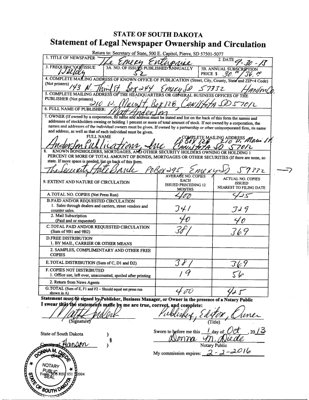 STATE OF SOUTH DAKOTA
Statement of Legal Newspaper Ownership and Circulation
Return to: Secretary of State, 500 E. Capitol, Pierre, SD 57501-5077
1. TITLE OF NEWSPAPER The Emery Enterprise 2. DATE 9-30-13
3. FREQUENCY OF ISSUE 3A. NO. OF ISSUES PUBLISHED ANNUALLY 3B. ANNUAL SUBSCRIPTION
52 PRICE $
4. COMPLETE MAILING ADDRESS OF KNOWN OFFICE OF PUBLICATION (Street, City, County, State and ZIP+4 Code)
(Not printers) Emery SD 57332
5. COMPLETE MAILING ADDRESS OF THE HEADQUARTERS OR GENERAL BUSINESS OFFICES OF THE
PUBLISHER (Not printers)
6. FULL NAME OF PUBLISHER: Matt Anderson
7. OWNER (If owned by a corporation, its name and address must be stated and
addresses of stockholders owning or holding 1 percent or more of total amount of stock. If not owned by a corporation, the
names and addresses of the individual owners must be given. If owned by a partnership or other unincorporated firm, its name
and address, as well as that of each individual must be given.
FULL NAME COMPLETE MAILING ADDRESS
Anderson Publications, Inc
8. KNOWN BONDHOLDERS, MORTGAGEES, AND OTHER SECURITY HOLDERS OWNING OR HOLDING 1
PERCENT OR MORE OF TOTAL AMOUNT OF BONDS, MORTGAGES OR OTHER SECURITIES (If there are none, so
state. If more space is needed, list on back of this form.
The Security State Bank
9. EXTENT AND NATURE OF CIRCULATION AVERAGE NO. COPIES EACH ISSUED PRECEDING 12 MONTHS ACTUAL NO. COPIES ISSUED NEAREST TO FILING DATE
A. TOTAL NO. COPIES (Net Press Run) 400 425
B. PAID AND/OR REQUESTED CIRCULATION
1. Sales through dealers and carriers, street vendors and
counter sales 341 329
2. Mail Subscription
(Paid and or requested) 40 40
C. TOTAL PAID AND/OR REQUESTED CIRCULATION
(Sum of 9B1 and 9B2) 381 369
D. FREE DISTRIBUTION
1. BY MAIL, CARRIER OR OTHER MEANS
2. SAMPLES, COMPLIMENTARY AND OTHER FREE
COPIES
E. TOTAL DISTRIBUTION (Sum of C, D1 and D2) 381 369
F. COPIES NOT DISTRIBUTED
1. Office use, left over, unaccounted, spoiled after printing 19 56
2. Return from News Agents
G. TOTAL (Sum of E, F1 and F2 - Should equal net press run
shown in A) 400 425
Statement must be signed by Publisher, Business Manager, or Owner in the presence of a Notary Public
I swear that the statements made by me are true, correct, and complete:
Publisher, Editor, Owner
(Signature) (Title)
State of South Dakota ) Sworn to before me this 1 day of Oct 2013
County of Hanson )
Notary Public
My commission expires: 2-2-2016
NOTARY
PUBLIC
SOUTH DAKOTA